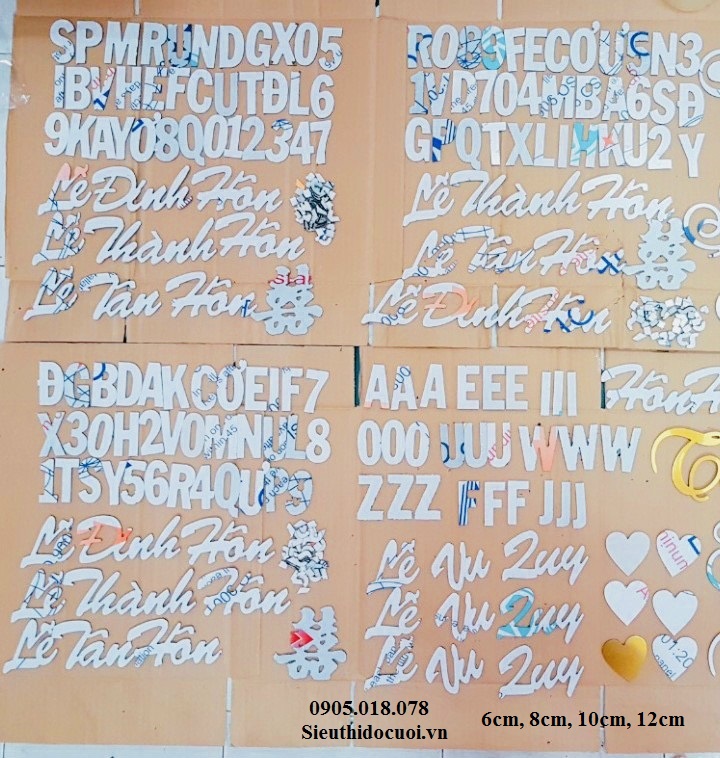 SPMRUNDGX05
IBVHEFCUTĐL6
9KAYƠ8Q012347
Lễ Đính Hôn
Lễ Thành Hôn
Lễ Tân Hôn
囍
1VD704MBA6SĐ
GPQTXLIHKU2Y
Lễ Thành Hôn
Lễ Tân Hôn
囍
Lễ Đính Hôn
ĐGBDAKCƠEIF7
X30H2VOHNUL8
1TSY56R4QƯP9
Lễ Đính Hôn
Lễ Thành Hôn
Lễ Tân Hôn
囍
AAA EEE III
Hôn H
OOO UUU WWW
ZZZ FFF JJJ
Lễ Vu Quy
Lễ Vu Quy
Lễ Vu Quy
0905.018.078
Sieuthidocuoi.vn
6cm, 8cm, 10cm, 12cm